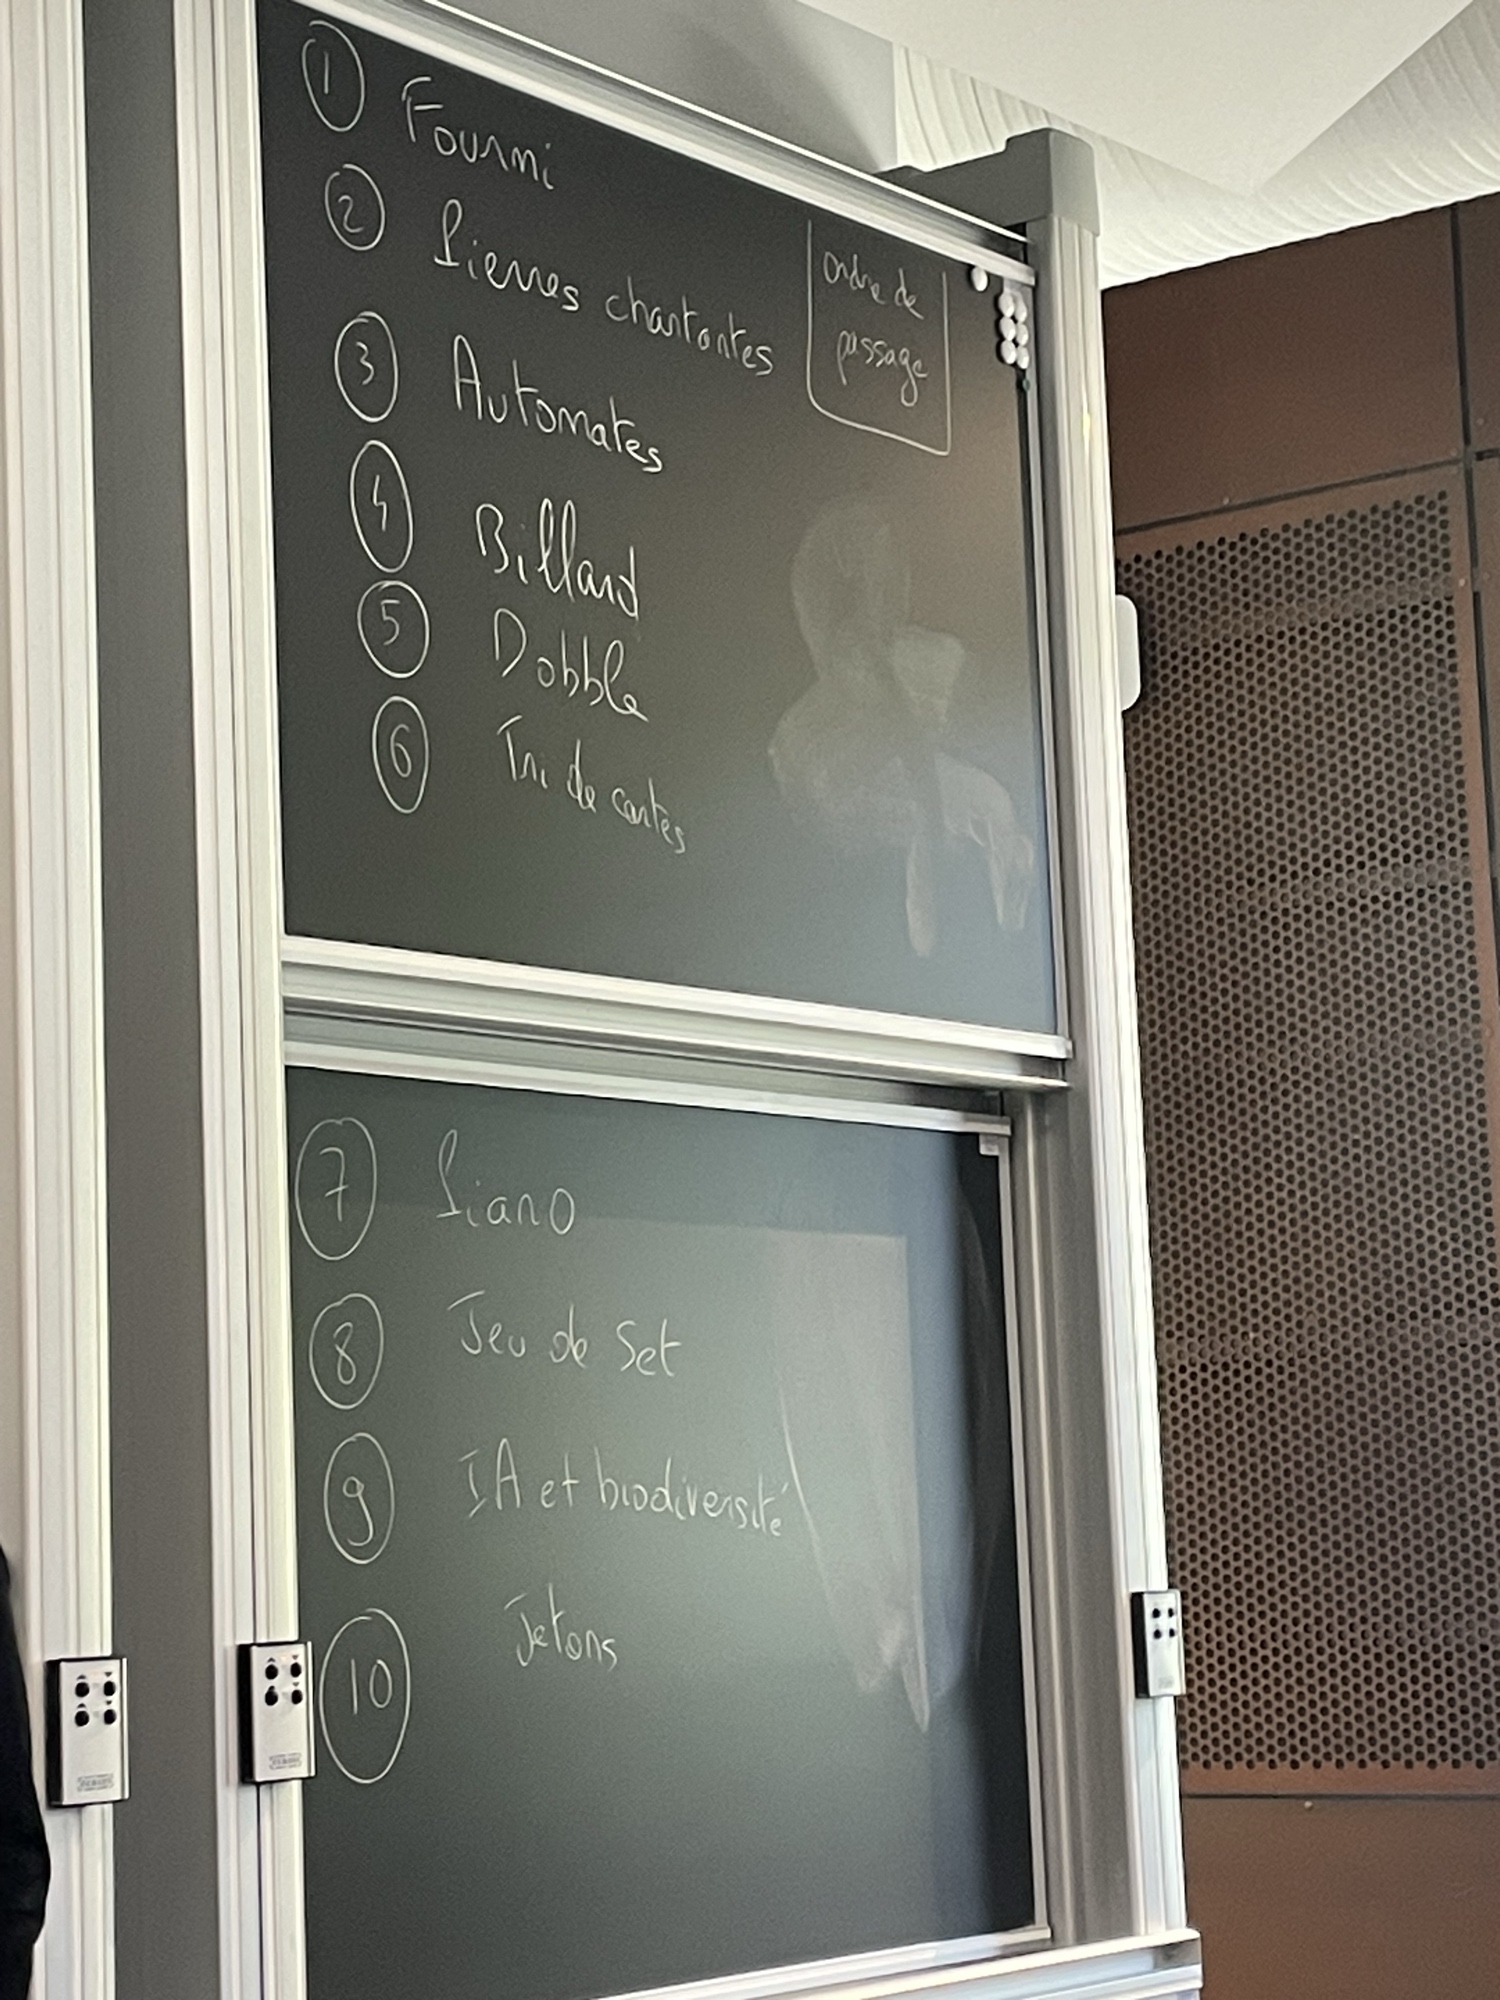 1 Fourmi
2 Pierres chantantes
ordre de
passage
3 Automates
4 Billard
5 Dobble
6 Tri de cartes
7 Piano
8 Jeu de Set
9 IA et biodiversité
10 Jetons